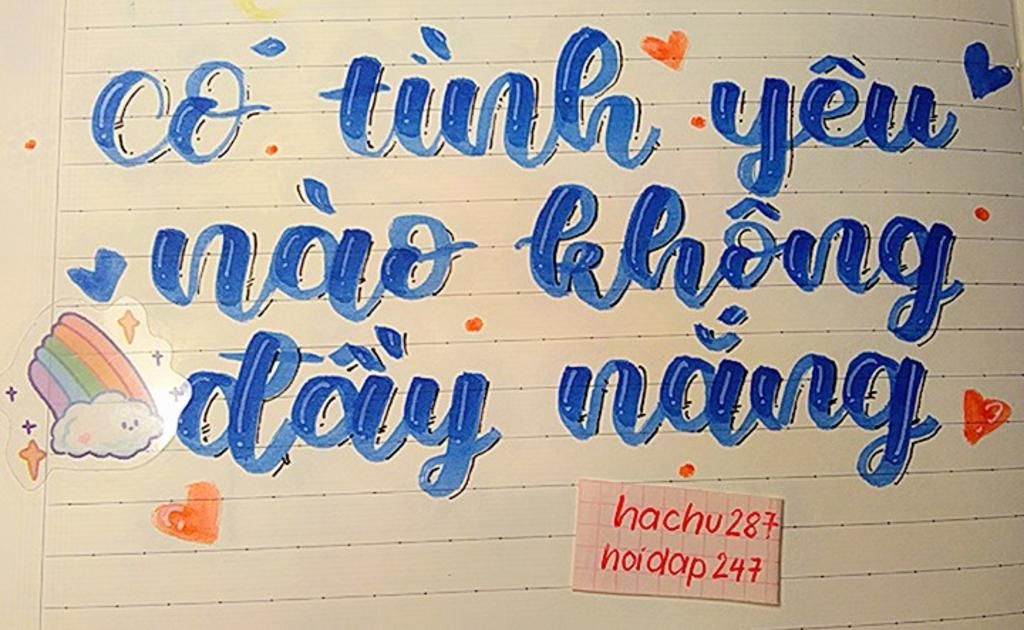 có tình yêu
nào không
đầy nắng
hachu287
hoidap247